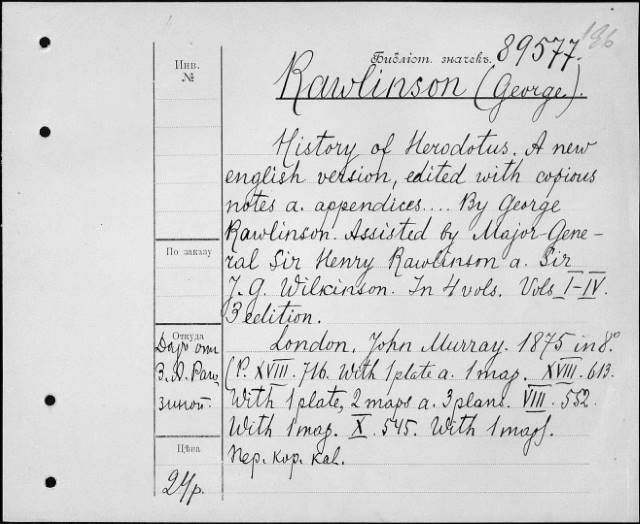 196
Библіот. значекъ. 89577.
Инв.
№
Rawlinson (George).
History of Herodotus. A new
english version, edited with copious
notes a. appendices.... By George
Rawlinson. Assisted by Major-Gene-
По заказу
ral Sir Henry Rawlinson a. Sir
J. G. Wilkinson. In 4 vols. Vols I-IV.
3 edition.
Откуда
London, John Murray. 1875 in 8º.
Даръ от
(P. XVIII. 716. With 1 plate a. 1 map. XVIII. 613.
З. А. Раго
With 1 plate, 2 maps a. 3 plans. VIII. 552.
зиной.
With 1 map. X. 545. With 1 map).
Цѣна
Пер. кор. кал.
24р.